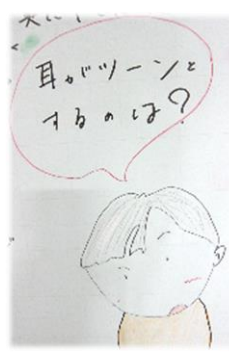 耳がツーンと
するのは？